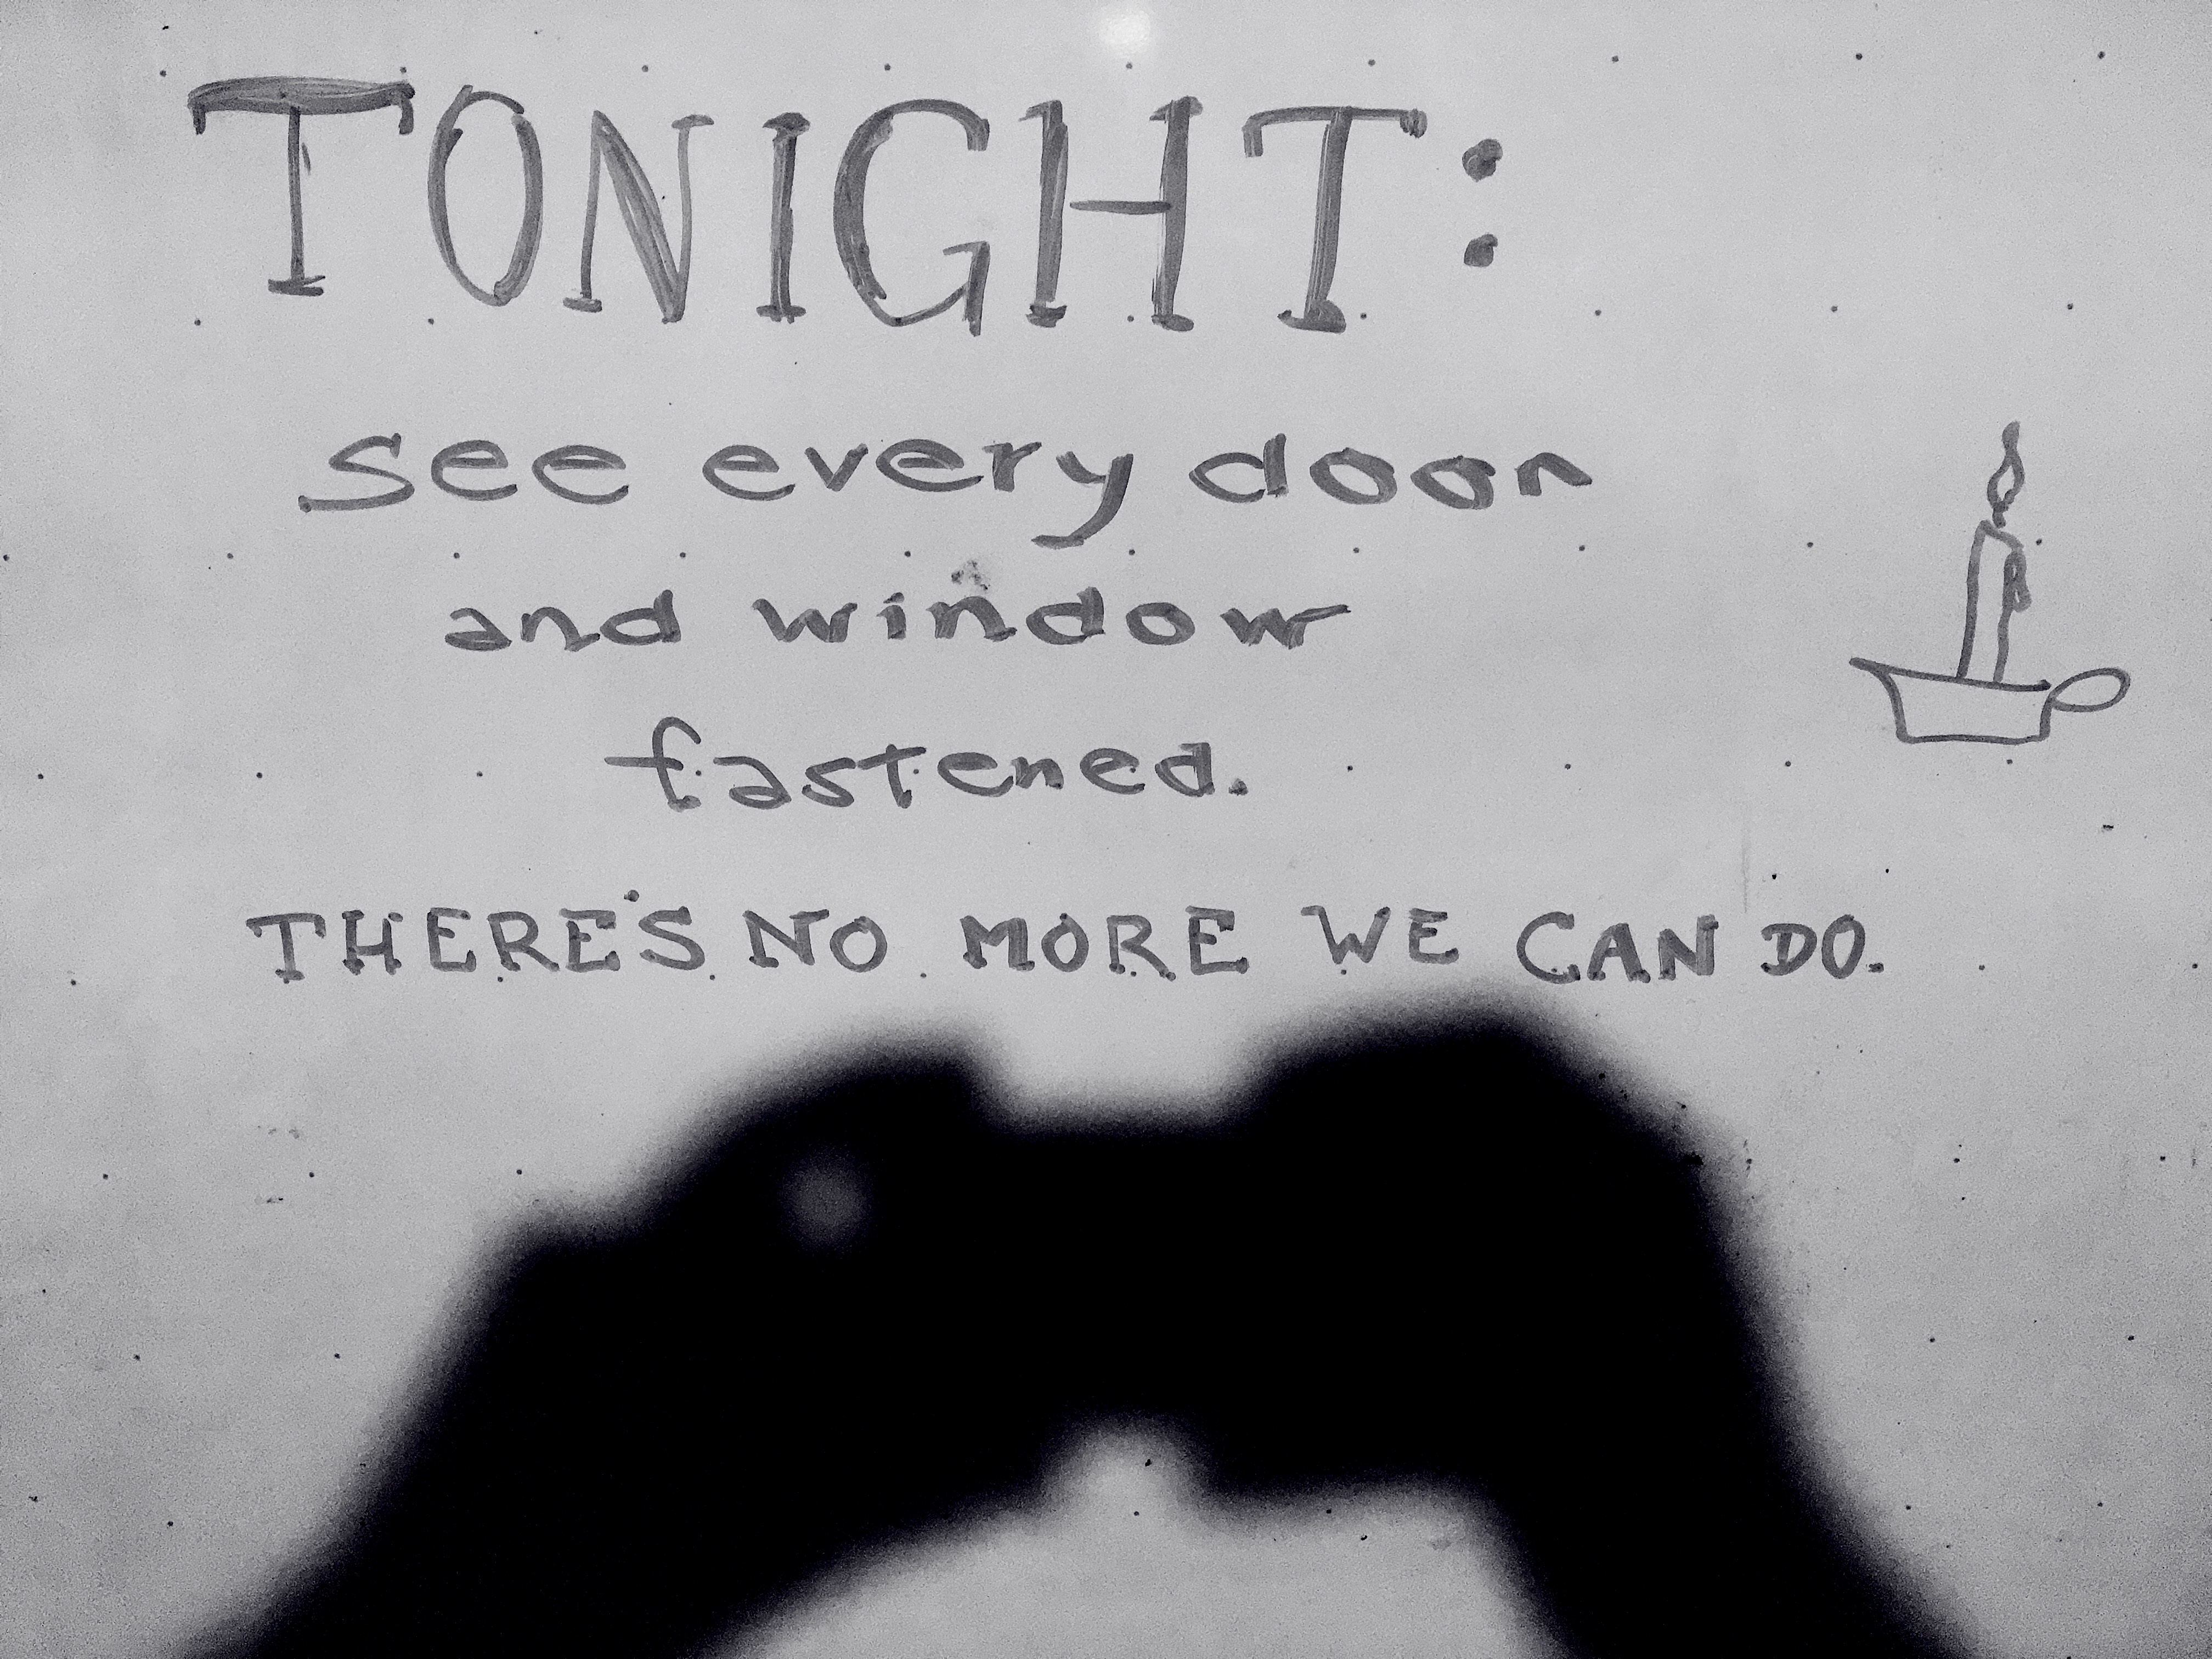 TONIGHT:
see every door
and window
fastened.
THERE'S NO MORE WE CAN DO.